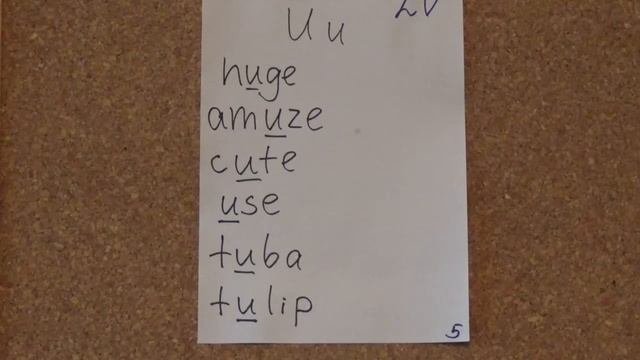 LV
U u
huge
amuze
cute
use
tuba
tulip
5